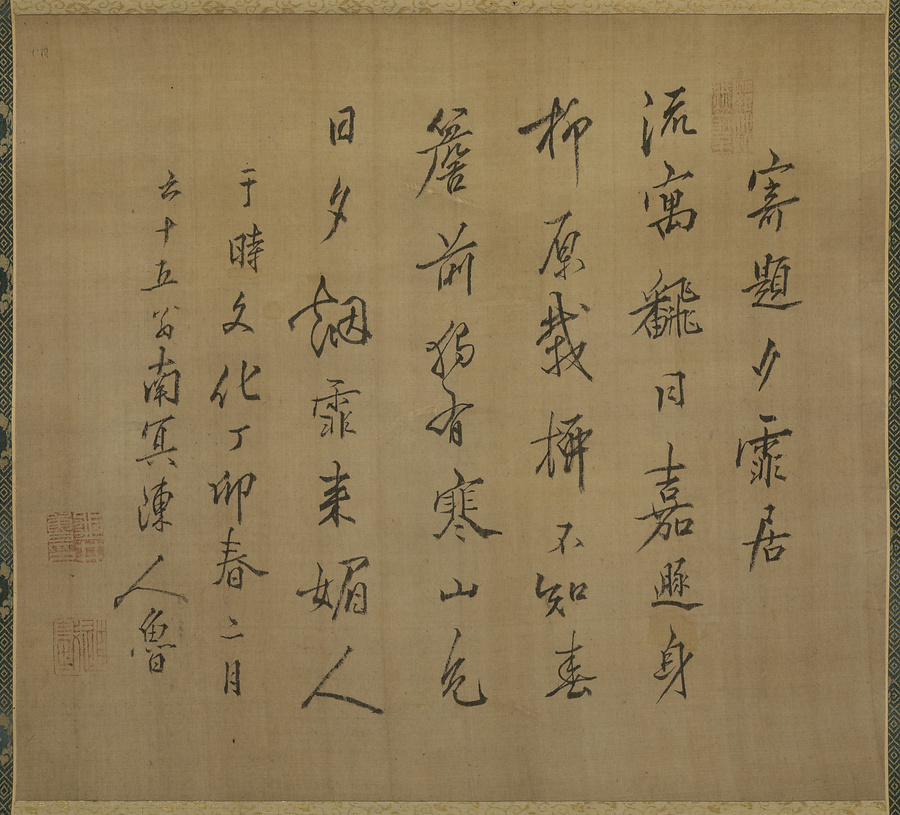 寄題夕霏居
流寓飜同嘉遯身
柳原栽不知春
簷前獨有寒山色
日夕烟霏来媚人
于時文化丁卯春二月
六十五翁南冥陳人魯